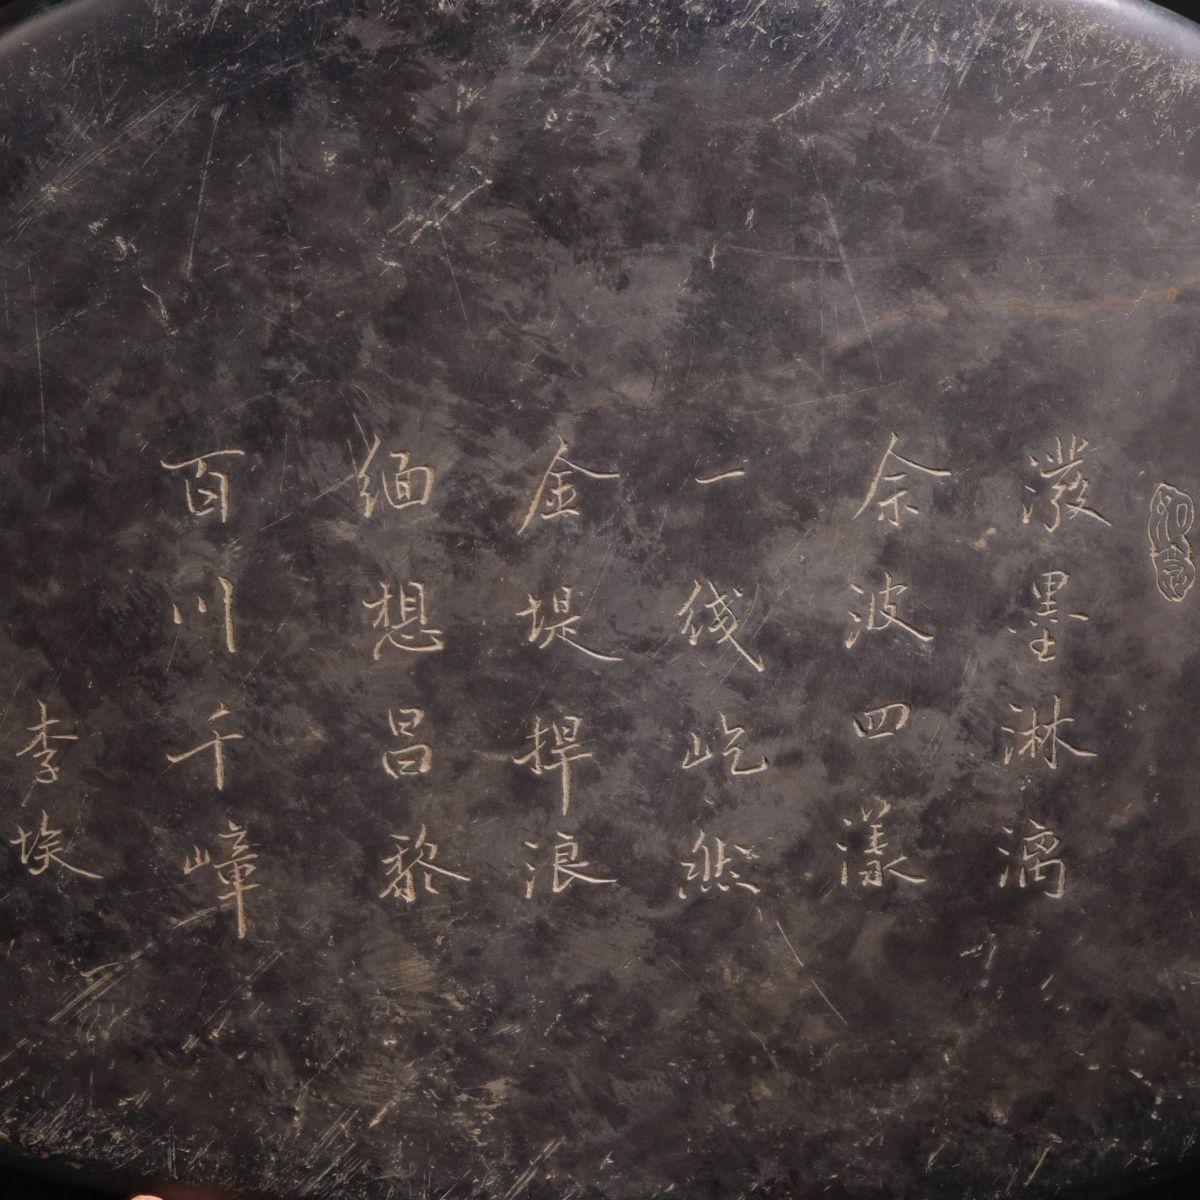 潑墨淋漓
余波四漾
一线屹然
金堤捍浪
缅想昌黎
百川千嶂
李埃